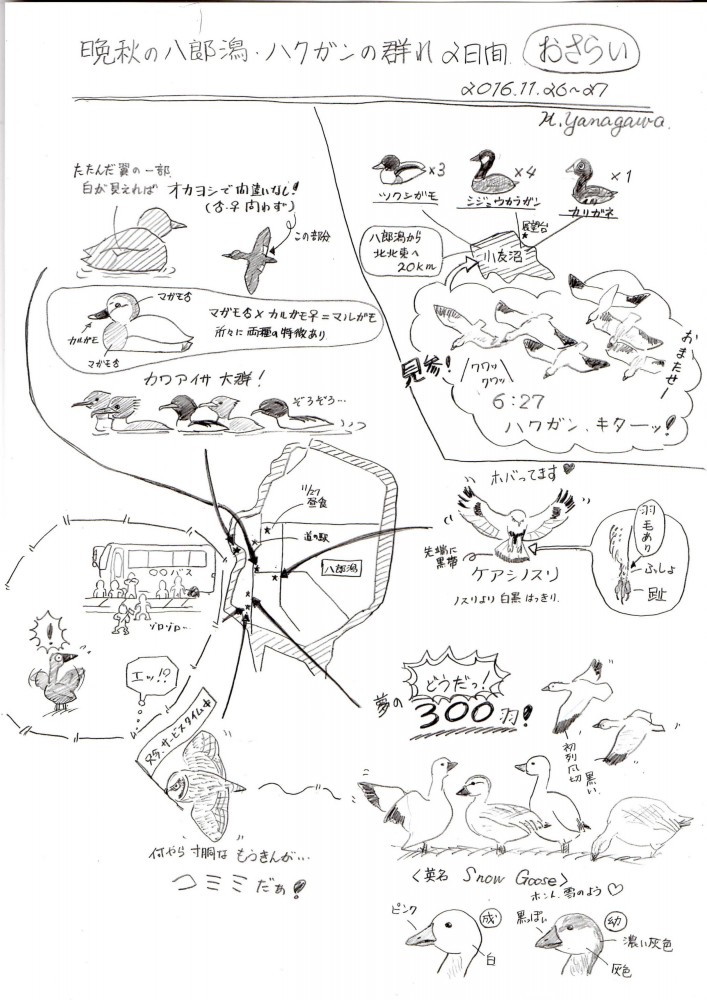 晩秋の八郎潟・ハクガンの群れ2日間 おさらい
2016.11.26~27
H.Yanagawa.
たたんだ翼の一部
白が見えれば オカヨシで間違いなし!
(♂・♀問わず)
この部分
マガモ♂
カルガモ
マガモ♂
マガモ♂×カルガモ♀=マルガモ
所々に両種の特徴あり
カワアイサ 大群!
ぞろぞろ…
×3
ツクシガモ
×4
シジュウカラガン
×1
カリガネ
展望台
八郎潟から
北北東へ
20km
小友沼
見参!
クワッ
クワッ
おまたせー
6:27
ハクガン、キターッ!
11/27
昼食
道の駅
八郎潟
ホバってます♥
先端に
黒帯
ケアシノスリ
ノスリより白黒はっきり.
羽毛あり
ふしょ
趾
○○バス
ゾロゾロ…
!
エッ!?
只今、サービスタイム中
何やら寸胴なもうきんが…
コミミだぁ!
どうだっ!
夢の300羽!
初列風切
黒い
〈英名 Snow Goose〉
ホント、雪のよう♡
ピンク
成
白
黒っぽい
幼
濃い灰色
灰色